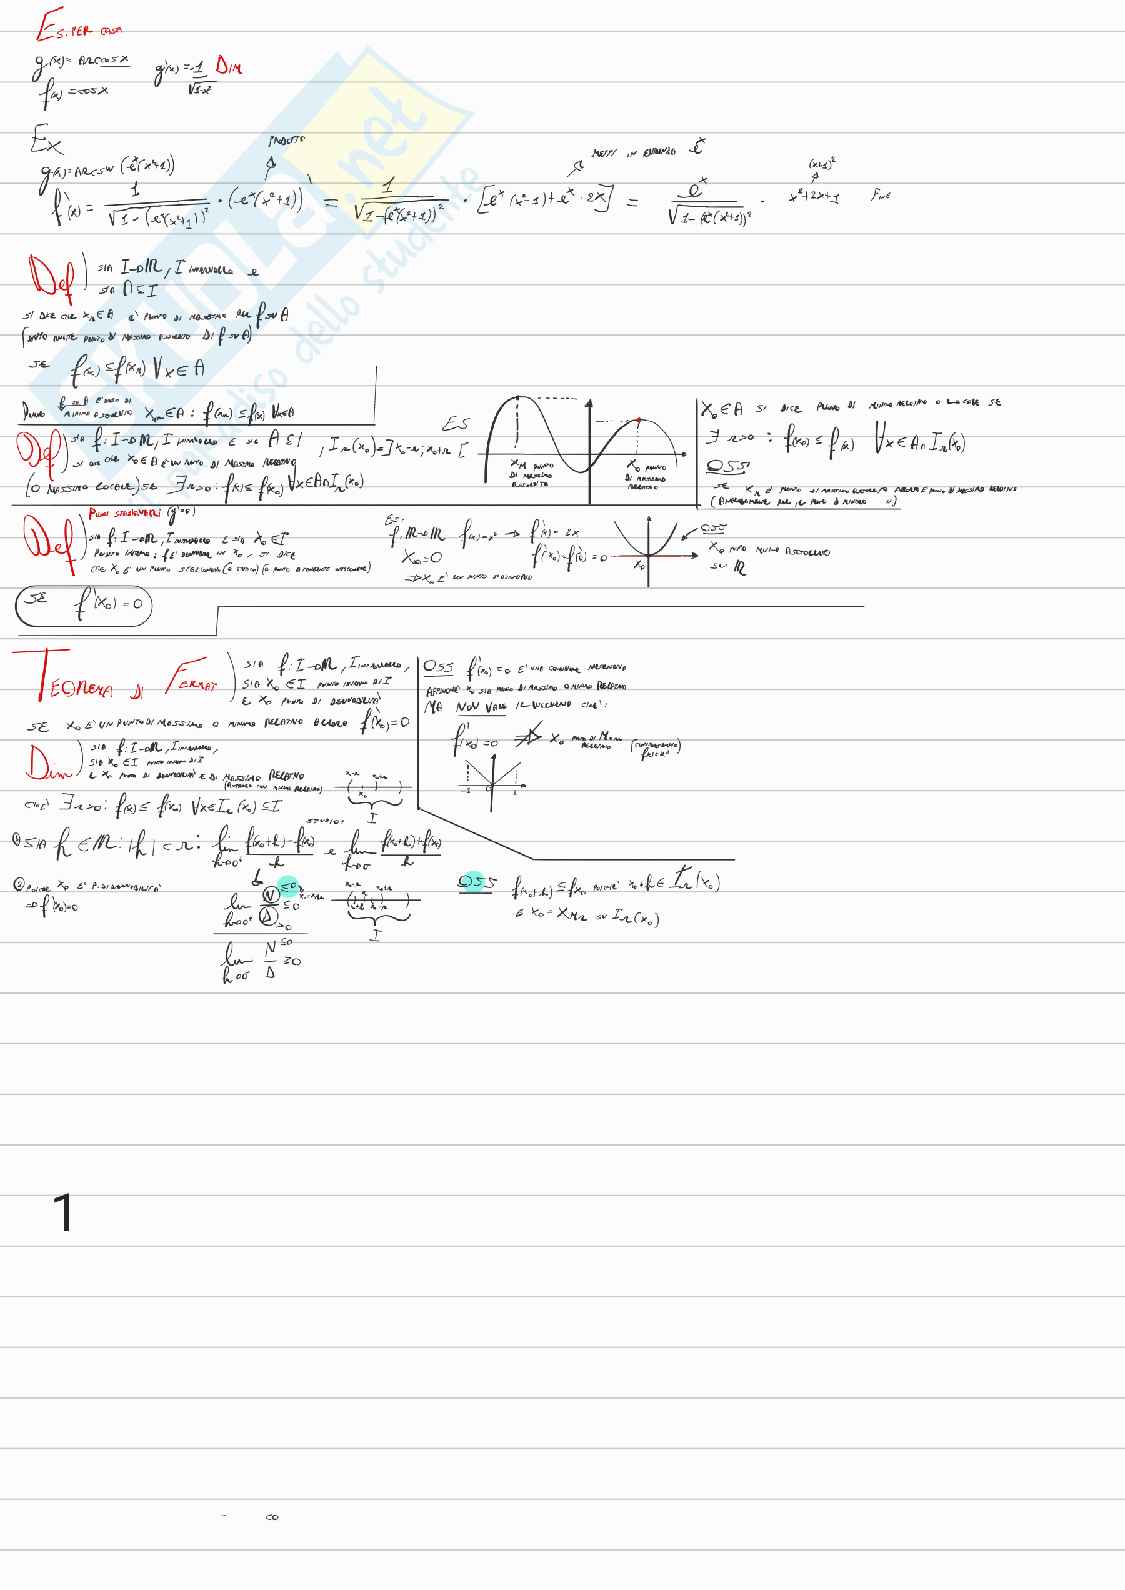 Es. PER CASA
g(x) = ARCCOSX g'(x) = -1/√1-x² DIM
f(x) = COSX
Ex PRODOTTO METTI IN EVIDENZA e^x (x+1)²
g(x) = ARCSIN (e^x(x²+1))
f'(x) = 1/√1-(e^x(x²+1))² · (e^x(x²+1))' = 1/√1-(e^x(x²+1))² · [e^x(x²+1)+e^x·2x] = e^x/√1-(e^x(x²+1))² · x²+2x+1 Fine
Def) SIA I→R, I INTERVALLO E
SIA A⊆I
SI DICE CHE X_M∈A È PUNTO DI MASSIMO PER f SU A
(DETTO ANCHE PUNTO DI MASSIMO ASSOLUTO DI f SU A)
SE f(x)≤f(x_M) ∀x∈A
MINIMO ASSOLUTO X_m∈A : f(x_m)≤f(x) ∀x∈A
Def) SIA f: I→R, I INTERVALLO E SIA A⊆I, I_r(x₀)=]x₀-r; x₀+r[
SI DICE CHE X₀∈A È UN PUNTO DI MASSIMO RELATIVO
(O MASSIMO LOCALE) SE ∃r>0: f(x)≤f(x₀) ∀x∈A∩I_r(x₀)
ES
X_M PUNTO DI MASSIMO ASSOLUTO
X₀ PUNTO DI MASSIMO RELATIVO
X₀∈A SI DICE PUNTO DI MINIMO RELATIVO O LOCALE SE
∃r>0 : f(x₀)≤f(x) ∀x∈A∩I_r(x₀)
OSS
SE X_M È PUNTO DI MASSIMO ASSOLUTO ALLORA È PUNTO DI MASSIMO RELATIVO
Def) PUNTI STAZIONARI (f'=0)
SIA f: I→R, I INTERVALLO E SIA X₀∈I
PUNTO INTERNO: f È DERIVABILE IN X₀, SI DICE
CHE X₀ È UN PUNTO STAZIONARIO (O CRITICO) (O PUNTO A TANGENTE ORIZZONTALE)
SE f'(x₀)=0
Es:
f: R→R f(x)=x² → f'(x)=2x
X₀=0 f'(x₀)=f'(0)=0
⇒X₀ È UN PUNTO STAZIONARIO
X₀
OSS
X₀ PUNTO MINIMO ASSOLUTO
SU R
TEOREMA DI FERMAT) SIA f: I→R, I INTERVALLO,
SIA X₀∈I PUNTO INTERNO DI I
E X₀ PUNTO DI DERIVABILITÀ
SE X₀ È UN PUNTO DI MASSIMO O MINIMO RELATIVO ALLORA f'(x₀)=0
OSS f'(x₀)=0 È UNA CONDIZIONE NECESSARIA
AFFINCHÉ X₀ SIA PUNTO DI MASSIMO O MINIMO RELATIVO
MA NON VALE IL VICEVERSA CIOÈ:
f'(x₀)=0 ⇏ X₀ PUNTO DI M RELATIVO (CONTROESEMPIO f(x)=x³)
-1 0 1
Dim) SIA f: I→R, I INTERVALLO,
SIA X₀∈I PUNTO INTERNO DI I
E X₀ PUNTO DI DERIVABILITÀ E DI MASSIMO RELATIVO
CIOÈ ∃r>0: f(x)≤f(x₀) ∀x∈I_r(x₀)⊆I
X₀-r X₀+r
X₀
I
STUDIO:
① SIA h∈R: |h|<r: lim h→0⁺ f(x₀+h)-f(x₀)/h e lim h→0⁻ f(x₀+h)+f(x₀)/h
② POICHÉ X₀ È P. DI DERIVABILITÀ
⇒f'(x₀)=0
lim h→0⁺ N≤0/D>0 ≤0
lim h→0⁻ N≤0/D ≥0
I
OSS f(x₀+h)≤f(x₀) POICHÉ X₀+h∈I_r(x₀)
E X₀=X_Mr SU I_r(x₀)
1
SKUOLA.net
dello studente